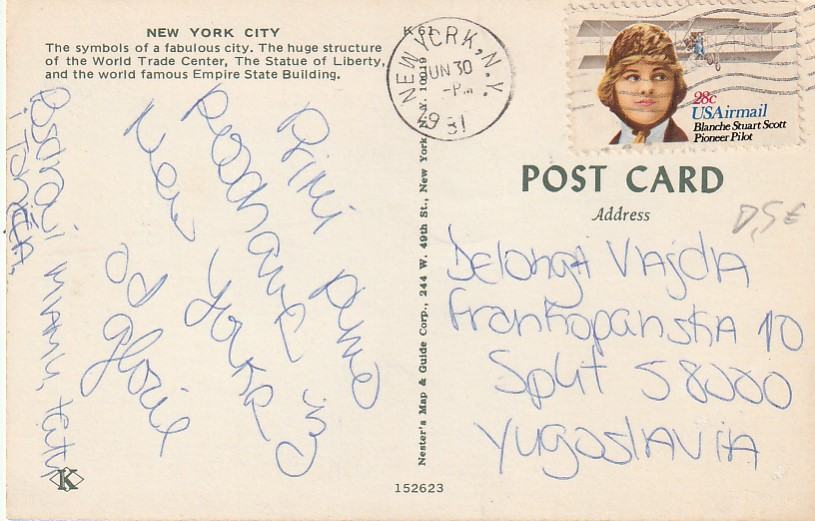 NEW YORK CITY
The symbols of a fabulous city. The huge structure
of the World Trade Center, The Statue of Liberty,
and the world famous Empire State Building.
Prvi puno
pozdrava iz
New Yorka
od Glorie
Pozdravi mamu, tatu
i Tončia.
K
K 61
Nester's Map & Guide Corp., 244 W. 49th St., New York, N.Y. 10019
NEW YORK, N.Y.
JUN 30
-PM
1981
28c
USAirmail
Blanche Stuart Scott
Pioneer Pilot
POST CARD
Address
0,5 €
Delonga Vajda
Frankopanska 10
Split 58000
Yugoslavia
152623